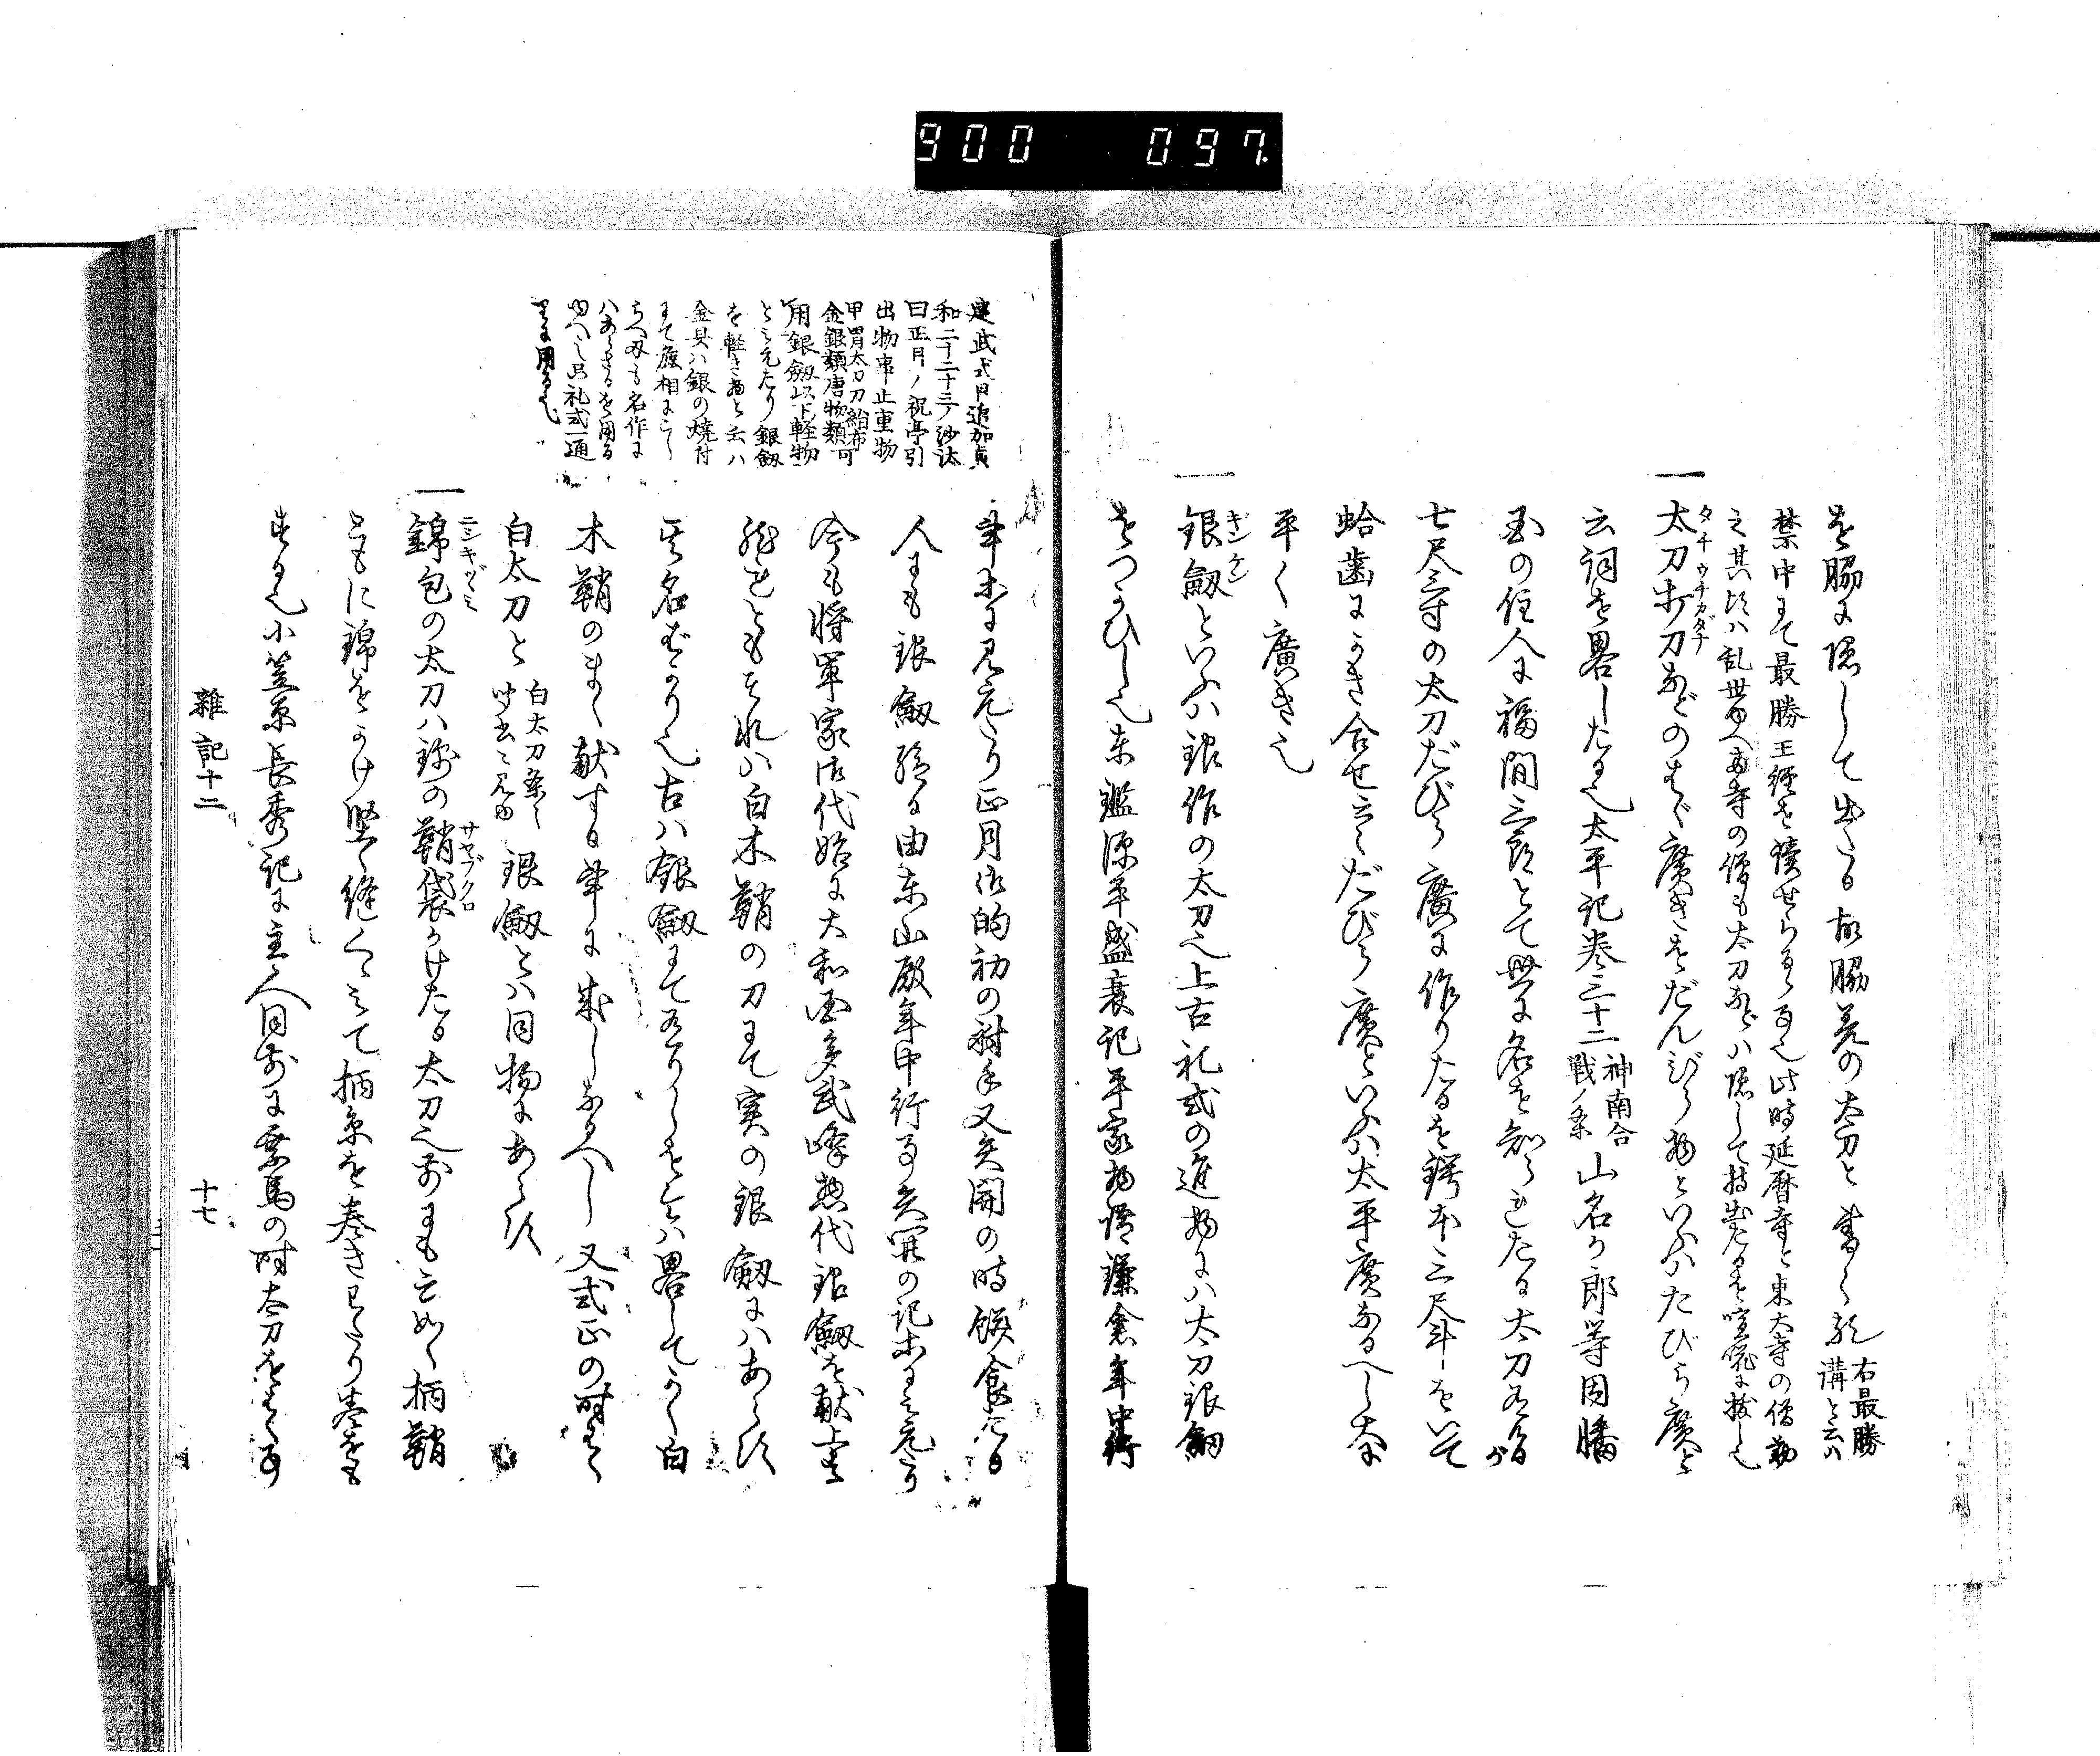 900 097
を脇に隠して出たる故脇差の太刀と書し
右最勝
講と云ハ
禁中にて最勝王経を講せらるゝ事也此時延暦寺と東大寺の僧勤
之其比ハ乱世ゆへ両寺の僧も太刀などハ隠して持出たるを喧嘩に抜し也
一太刀打刀などのはゞ廣きをだんびら物といふハたびら廣と
タチウチカタナ
云詞を畧したる也太平記巻三十二
神南合
戦ノ条
山名か郎等因幡
国の住人に福間三郎とて世に名を知られたる太刀
七尺三寸の太刀だびら廣に作りたるを鍔本三尺斗をいて
蛤歯にかき合せと云々だびら廣といふハ太平廣なるへし大に
平く廣き也
一銀劔といふハ銀作の太刀也上古礼式の進物にハ太刀銀劔
ギンケン
をつかひし也東鑑源平盛衰記平家物語鎌倉年中行
事等に見えたり正月御的初の射手又矢開の時餅食たる
人にも銀劔給る由東山殿年中行事矢開の記等に見えたり
今も将軍家御代始に大和国多武峰惣代銀劔を献上す
然れともそれハ白木鞘の刀にて実の銀劔にハあらす
其名ばかり也古ハ銀劔にて有りしを今ハ畧してかく白
木鞘のまゝ献する事に成しなるへし又式正の時はく
白太刀と
白太刀条々
此書ニ見ゆ
銀劔とハ同物にあらす
一錦包の太刀ハ錦の鞘袋かけたる太刀也前にも云如く柄鞘
ニシキヅヽミ
サヤブクロ
ともに錦をかけ堅く縫くゝみて柄糸を巻き
する也小笠原長秀記に主人同前に乗馬の時太刀をはく事
建武式目追加貞
和二十二十三ノ沙汰
曰正月ノ祝亭引
出物事止重物
甲冑太刀刀絹布
金銀類唐物類可
用銀劔以下軽物
とみえたり銀劔
を軽き物と云ハ
金具ハ銀の焼付
にて麁相にし
らへ刃も名作に
ハあらさるを用る
ゆへ也只礼式一通
りに用る也
雜記十二
十七